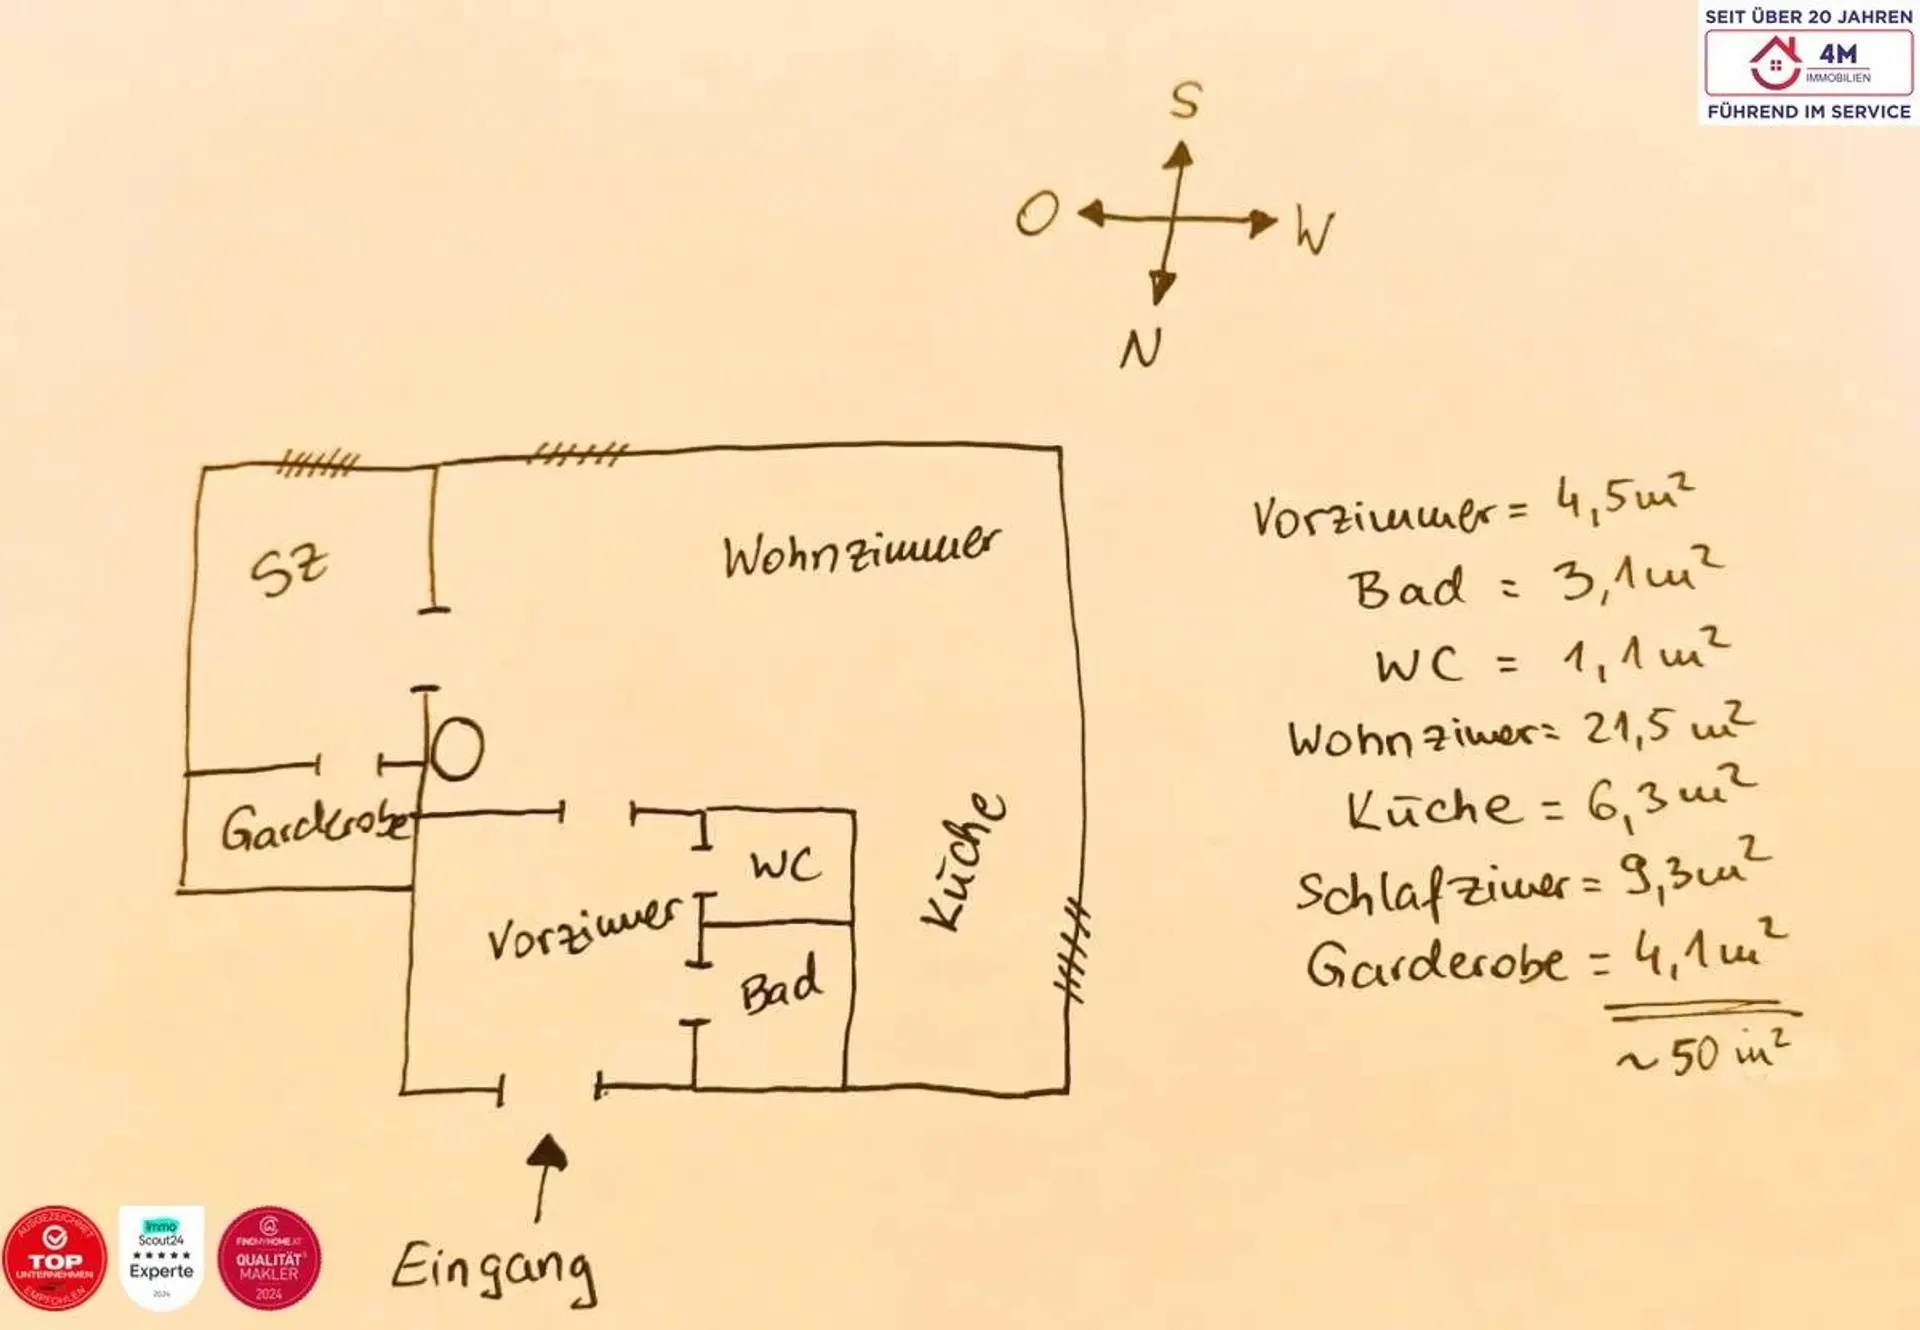 SEIT ÜBER 20 JAHREN
4M
IMMOBILIEN
FÜHREND IM SERVICE
S
O
W
N
SZ
Wohnzimmer
Garderobe
WC
Vorzimmer
Bad
Küche
Vorzimmer = 4,5m²
Bad = 3,1m²
WC = 1,1m²
Wohnzimer= 21,5m²
Küche = 6,3m²
Schlafzimer = 9,3m²
Garderobe = 4,1m²
~50m²
Eingang
AUSGEZEICHNET
TOP
UNTERNEHMEN
EMPFOHLEN
Immo
Scout24
★★★★★
Experte
2024
FINDMYHOME.AT
QUALITÄTS
MAKLER
2024